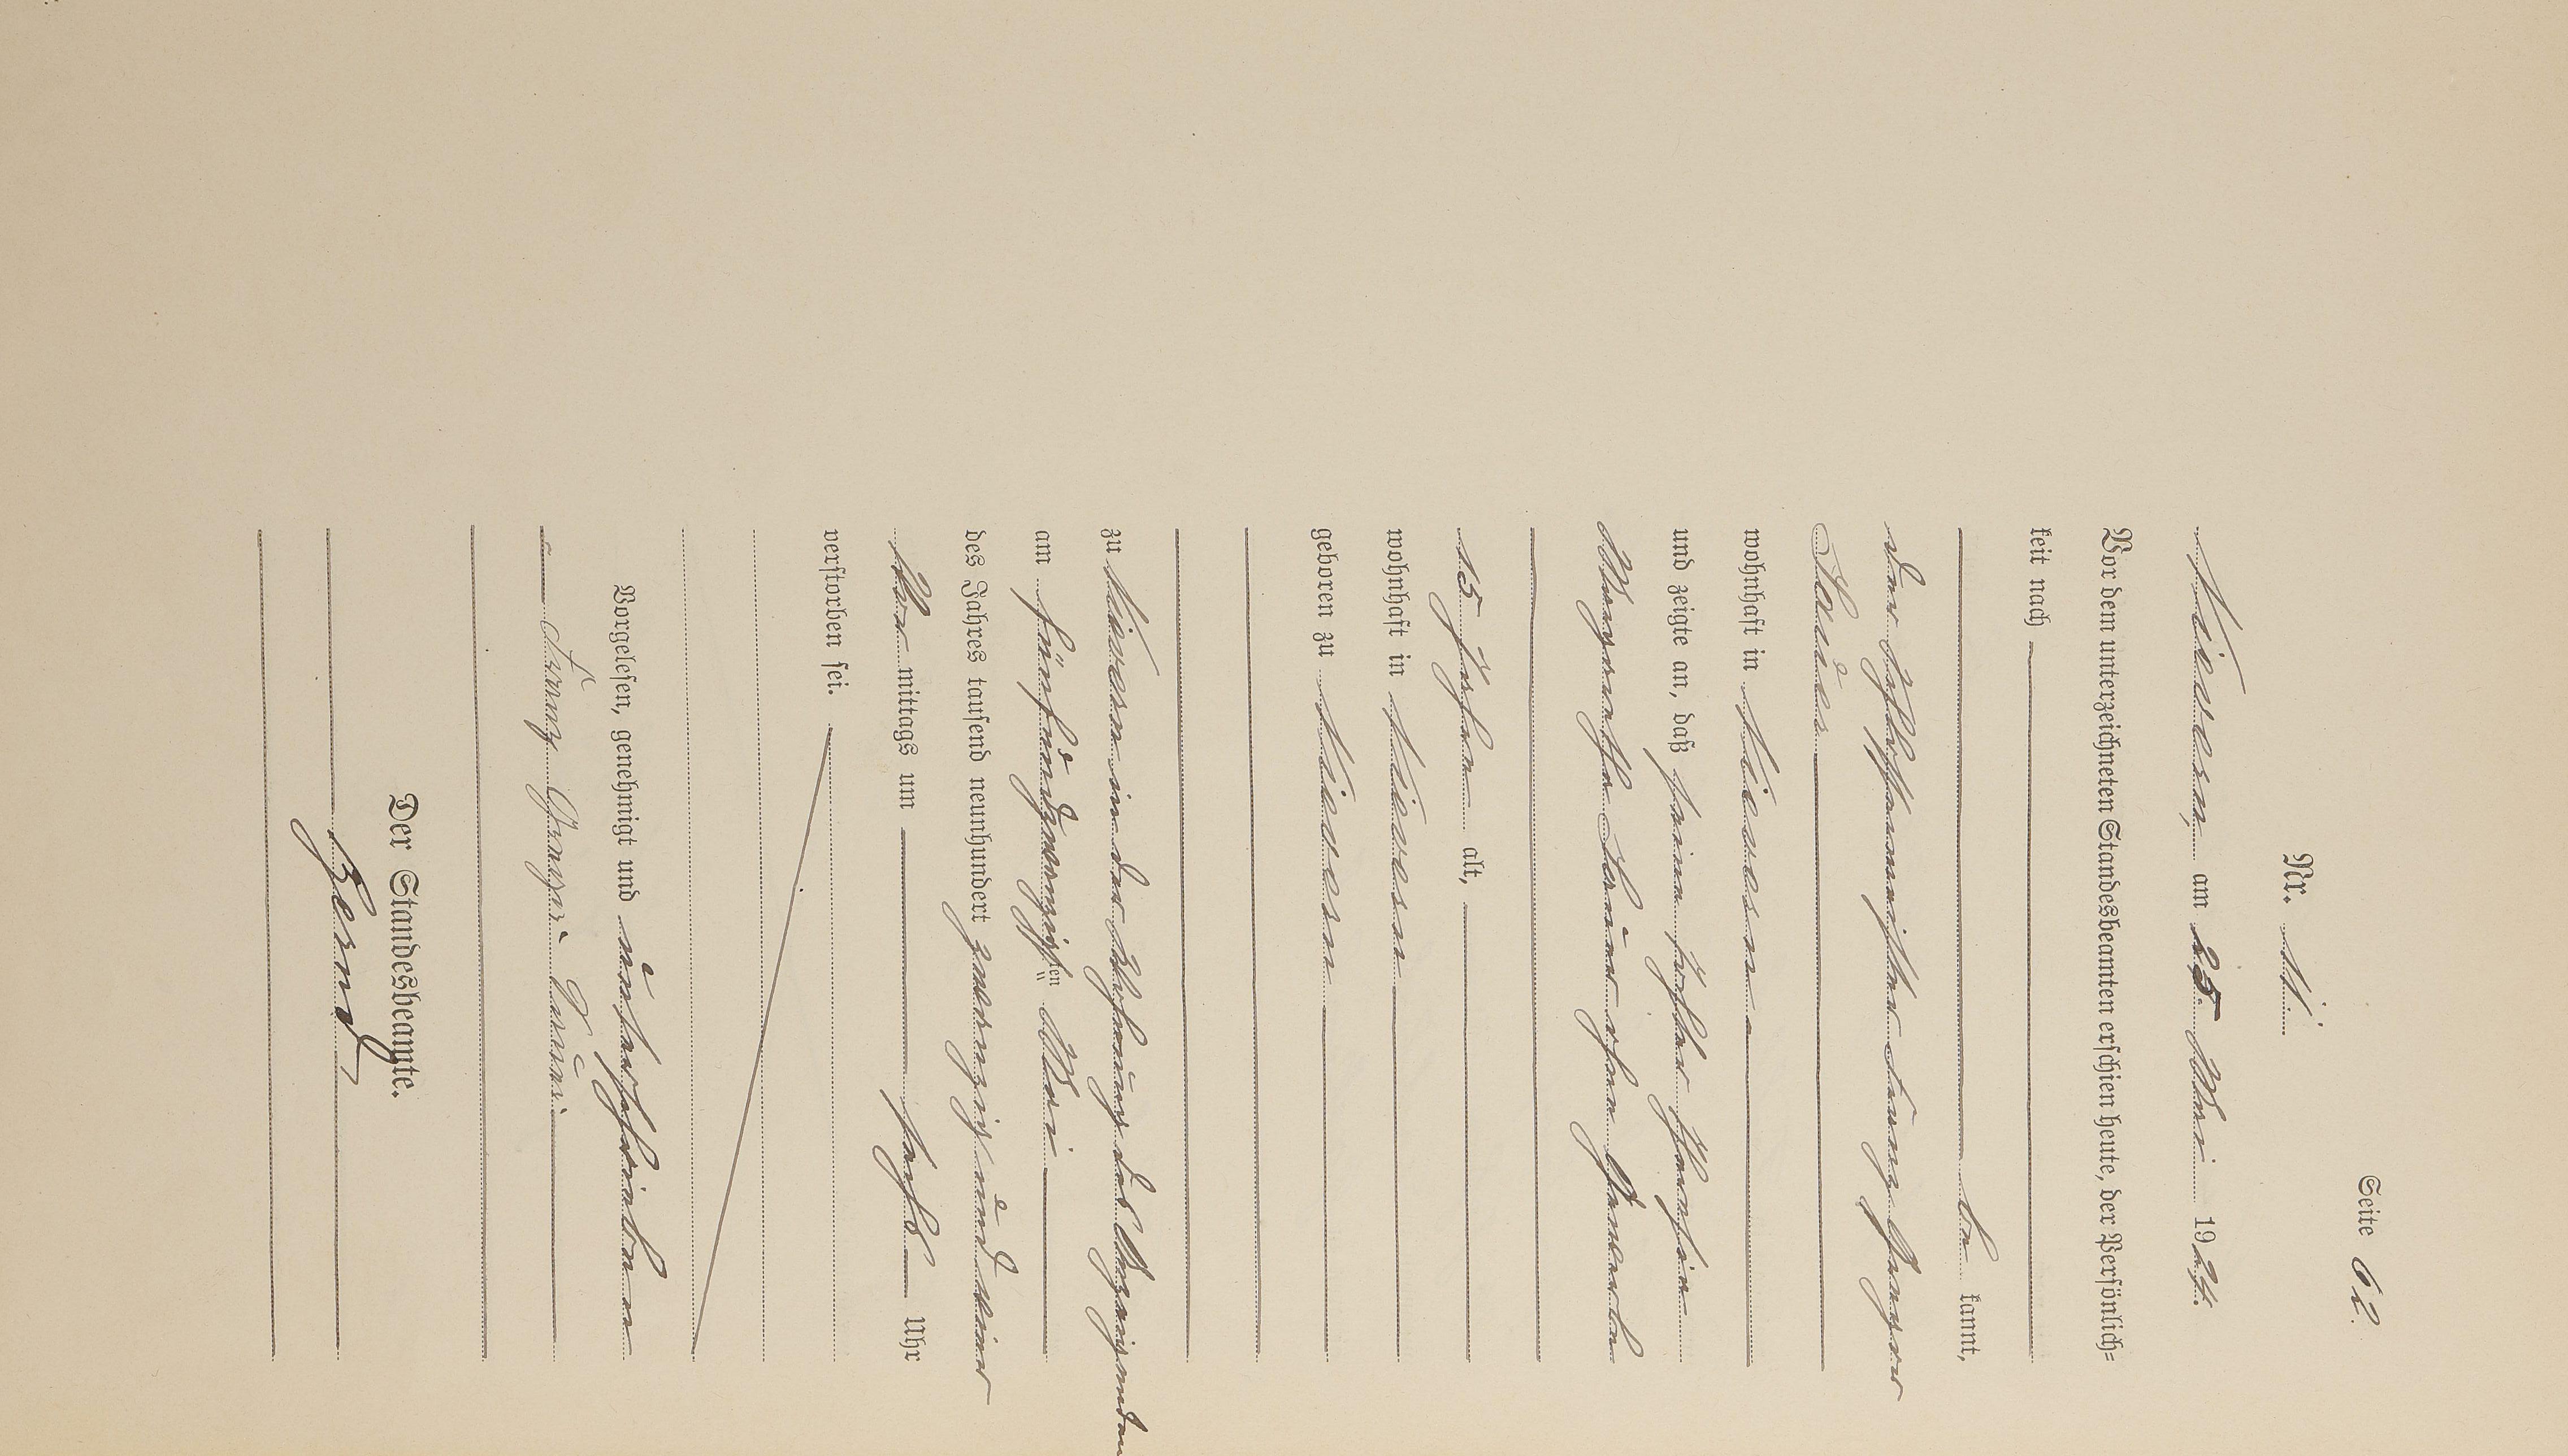 Seite 62.
Nr. 11.
Nievern, am 25. Mai 1924.
Vor dem unterzeichneten Standesbeamten erschien heute, der Persönlich=
keit nach
be kannt,
der Schlossermeister Franz
wohnhaft in Nievern
und zeigte an, daß seine Tochter
Margaretha ohne Gewerbe
15 Jahre alt,
wohnhaft in Nievern
geboren zu Nievern
zu Nievern in der Wohnung des Anzeigenden
am fünfundzwanzigsten Mai
des Jahres tausend neunhundert zwanzig und vier
Vor mittags um sechs Uhr
verstorben sei.
Vorgelesen, genehmigt und unterschrieben
Franz
Der Standesbeamte.